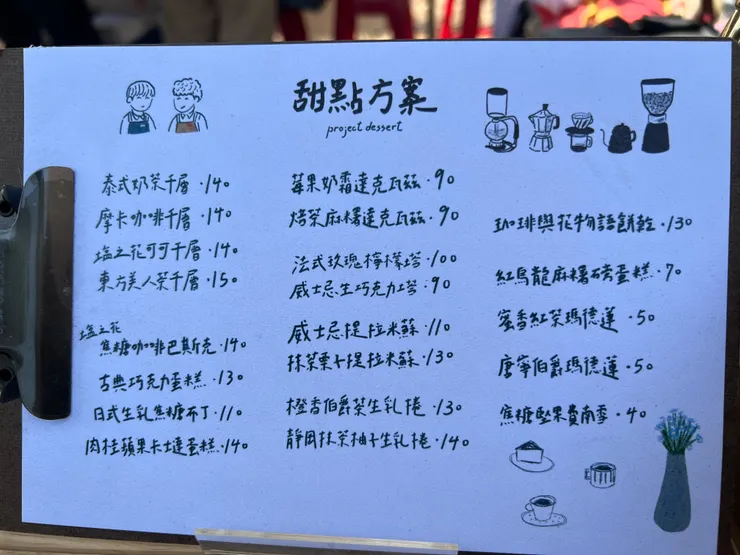 甜點方案
project dessert
泰式奶茶千層·140
摩卡咖啡千層·140
塩之花可可千層·140
東方美人茶千層·150
塩之花
焦糖咖啡巴斯克·140
古典巧克力蛋糕·130
日式生乳焦糖布丁·110
肉桂蘋果卡士達蛋糕·140
莓果奶霜達克瓦茲·90
焙茶麻糬達克瓦茲·90
法式玫瑰檸檬塔·100
威士忌生巧克力塔·90
威士忌提拉米蘇·110
抹茶栗子提拉米蘇·130
橙香伯爵茶生乳捲·130
靜岡抹茶柚子生乳捲·140
珈琲與花物語餅乾·130
紅烏龍麻糬磅蛋糕·70
蜜香紅茶瑪德蓮·50
唐寧伯爵瑪德蓮·50
焦糖堅果費南雪·40